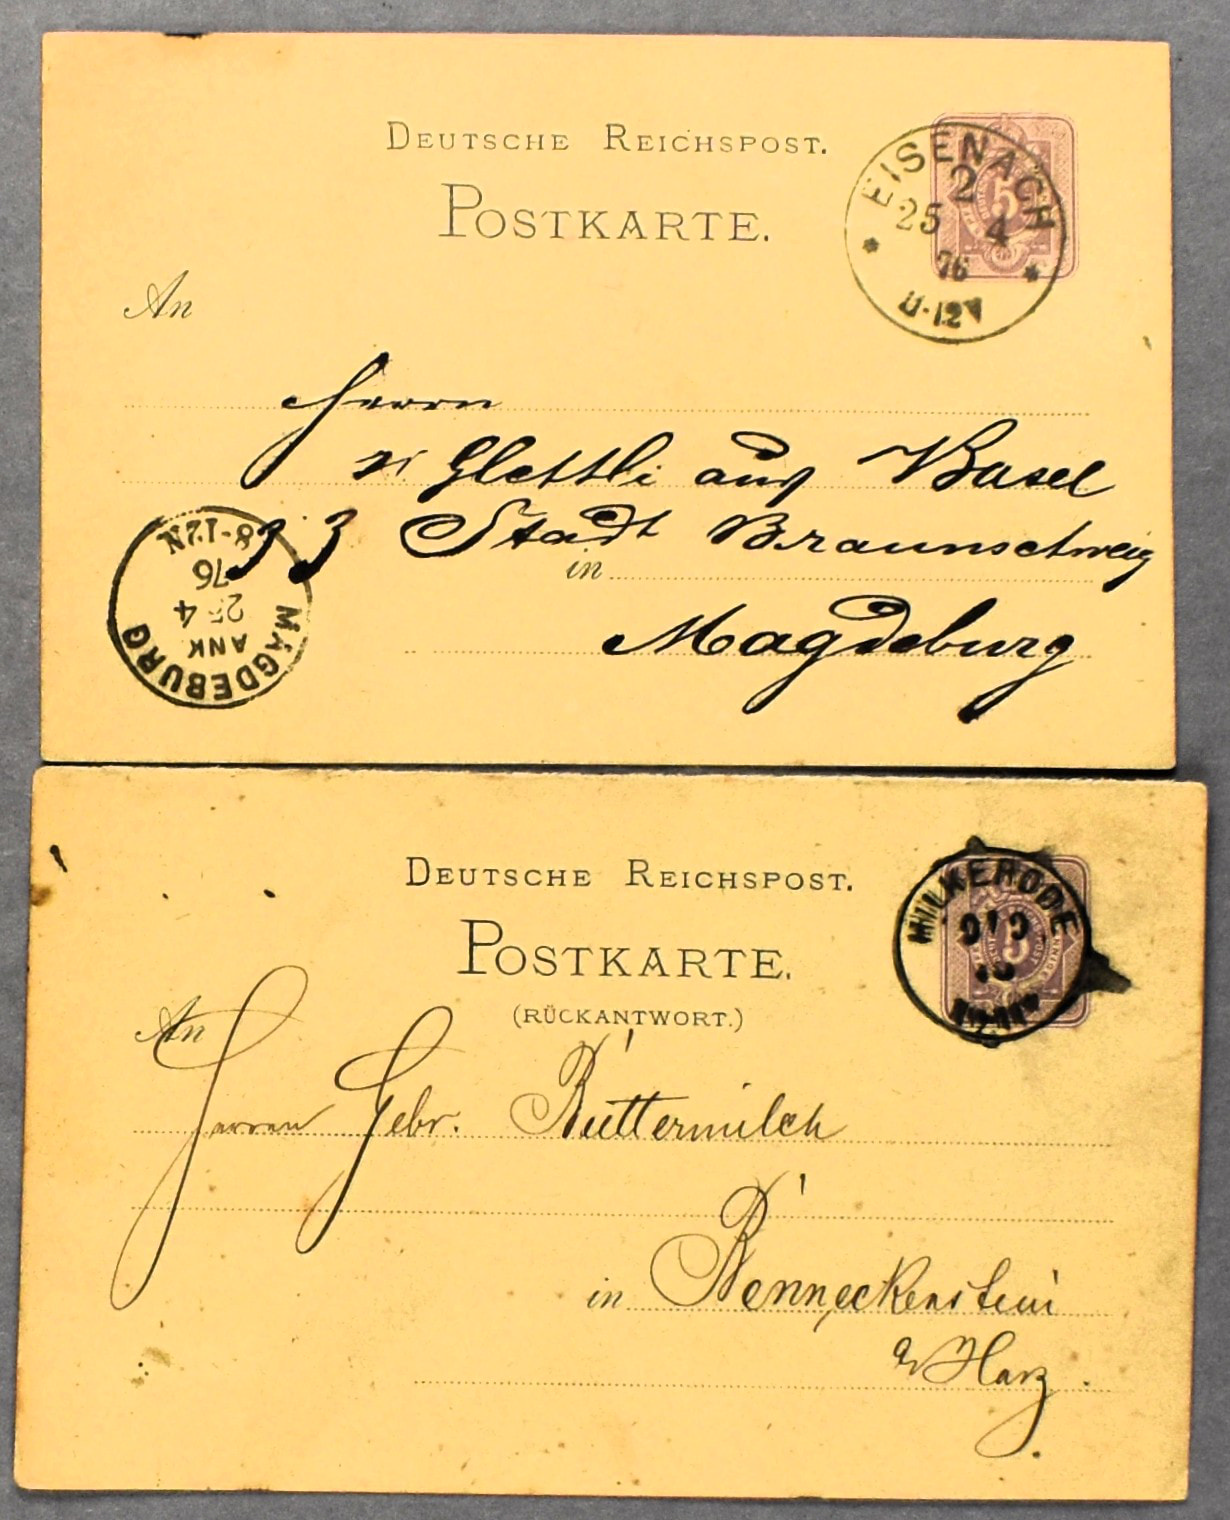 DEUTSCHE REICHSPOST.
POSTKARTE.
EISENACH
2
25 4
76
5
An
Herrn
Glettli aus Basel
33 Stadt Braunschweig
in
Magdeburg
MAGDEBURG
ANK
25 4
76
8-12N
DEUTSCHE REICHSPOST.
POSTKARTE.
(RÜCKANTWORT.)
5
An
Herren Gebr. Büttermilch
in Benneckenstein
Harz.